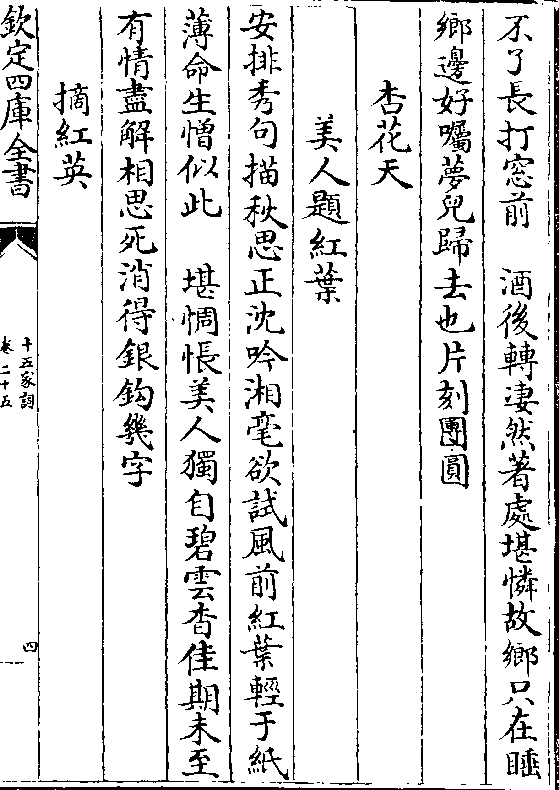 不了長打窓前　酒後轉凄然著處堪憐故鄉只在睡
鄉邊好囑夢兒歸去也片刻團圓
杏花天
美人題紅葉
安排秀句描秋思正沈吟湘毫欲試風前紅葉輕于紙
薄命生憎似此　堪惆悵美人獨自碧雲杳佳期未至
有情盡解相思死消得銀鈎幾字
摘紅英
欽定四庫全書
十五家詞
卷二十五
四